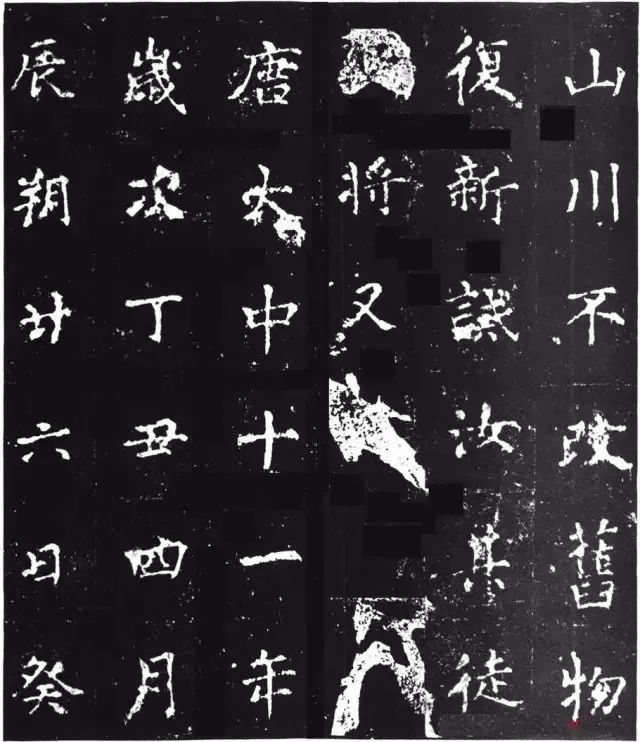 山川不改舊物
復新誡汝其徒
將又
唐大中十一年
歲次丁丑四月
辰朔廿六日癸